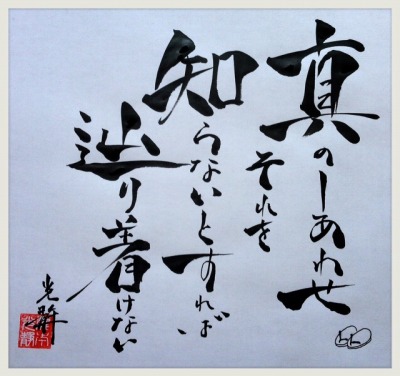 真のしあわせ
それを
知らないとすれば
辿り着けない